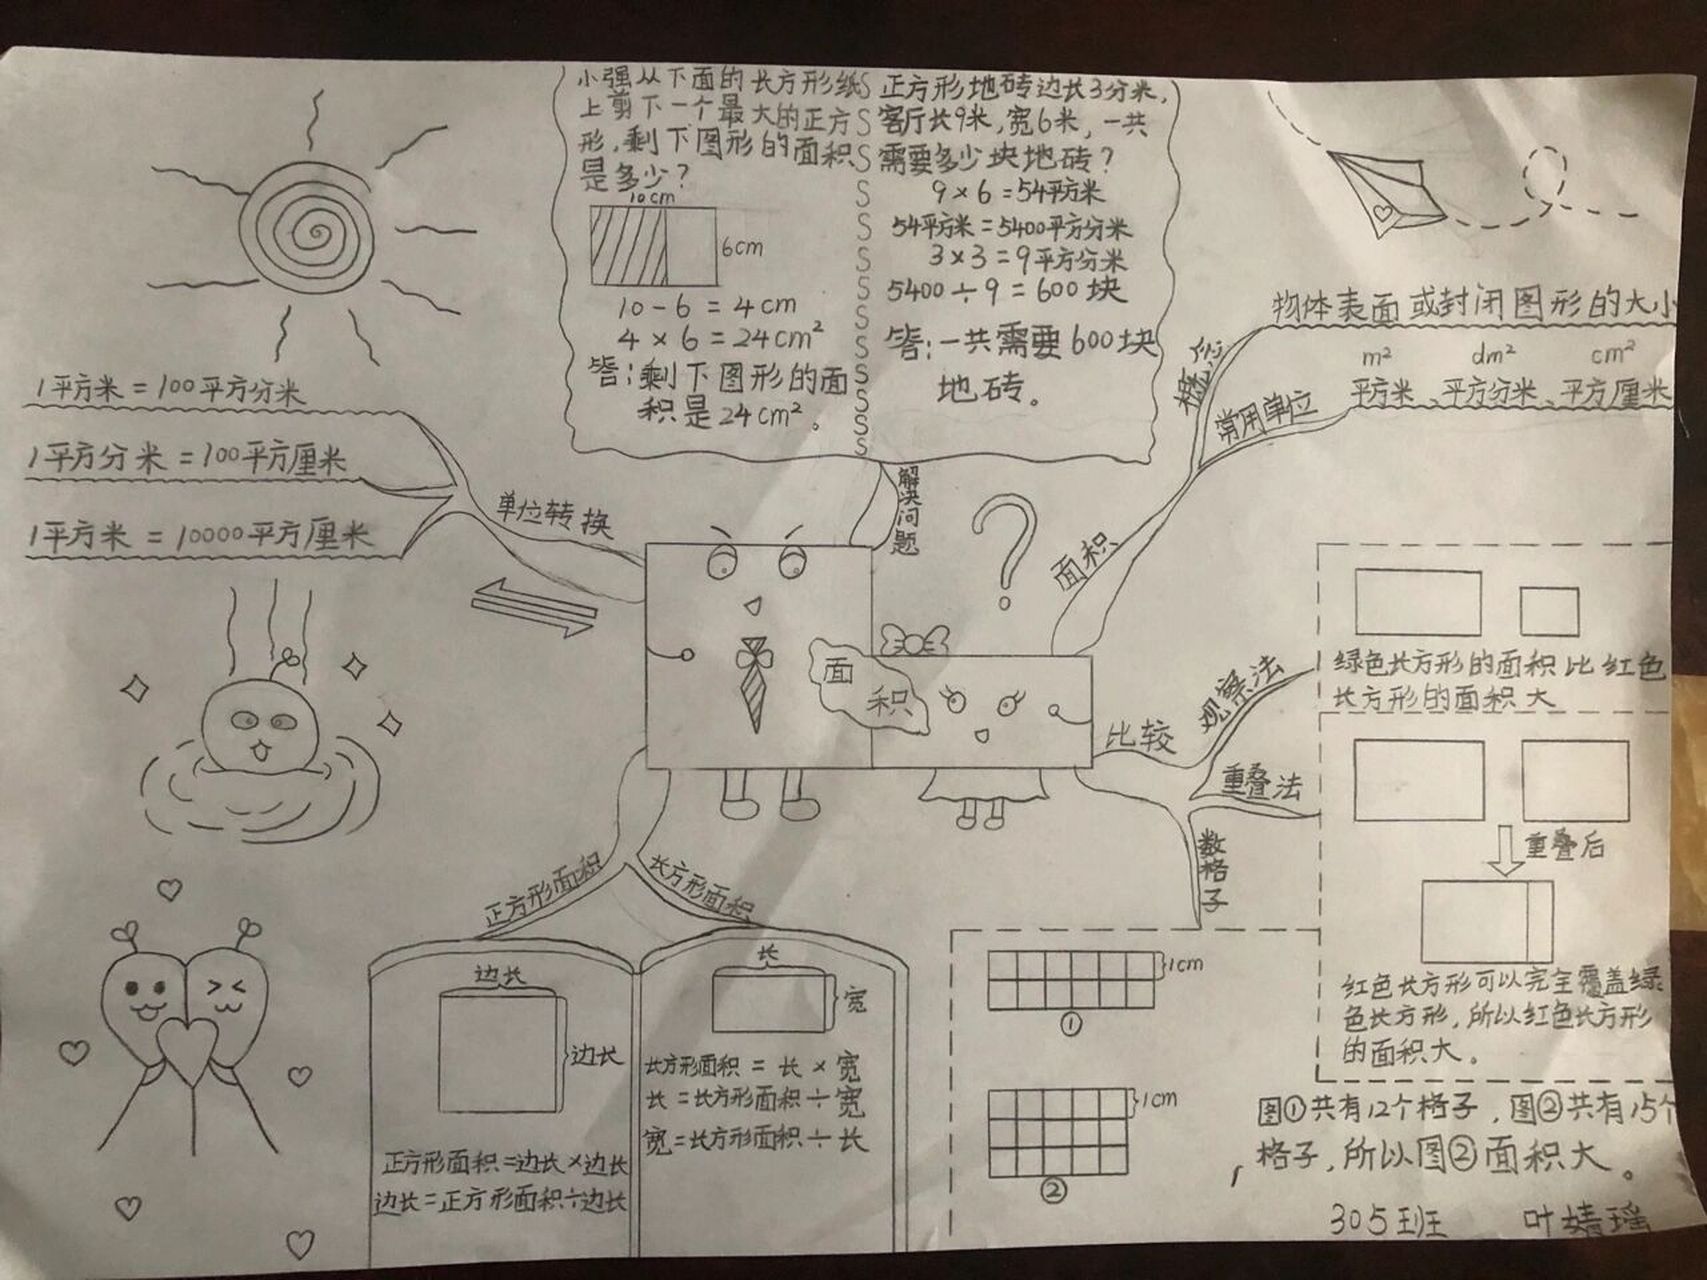 小强从下面的长方形纸
上剪下一个最大的正方
形,剩下图形的面积
是多少?
10cm
6cm
10-6=4cm
4×6=24cm²
答:剩下图形的面
积是24cm²。
S
S
S
S
S
S
S
S
S
S
S
S
S
正方形地砖边长3分米,
客厅长9米,宽6米,一共
需要多少块地砖?
9×6=54平方米
54平方米=5400平方分米
3×3=9平方分米
5400÷9=600块
答:一共需要600块
地砖。
解决问题
1平方米=100平方分米
1平方分米=100平方厘米
1平方米=10000平方厘米
单位转换
面积
概念
物体表面或封闭图形的大小
常用单位
m² dm² cm²
平方米、平方分米、平方厘米
面
积
比较
观察法
绿色长方形的面积比红色
长方形的面积大
重叠法
重叠后
红色长方形可以完全覆盖绿
色长方形,所以红色长方形
的面积大。
数格子
1cm
①
1cm
②
图①共有12个格子,图②共有15个
格子,所以图②面积大。
正方形面积
边长
边长
正方形面积=边长×边长
边长=正方形面积÷边长
长方形面积
长
宽
长方形面积=长×宽
长=长方形面积÷宽
宽=长方形面积÷长
305班 叶婧瑶